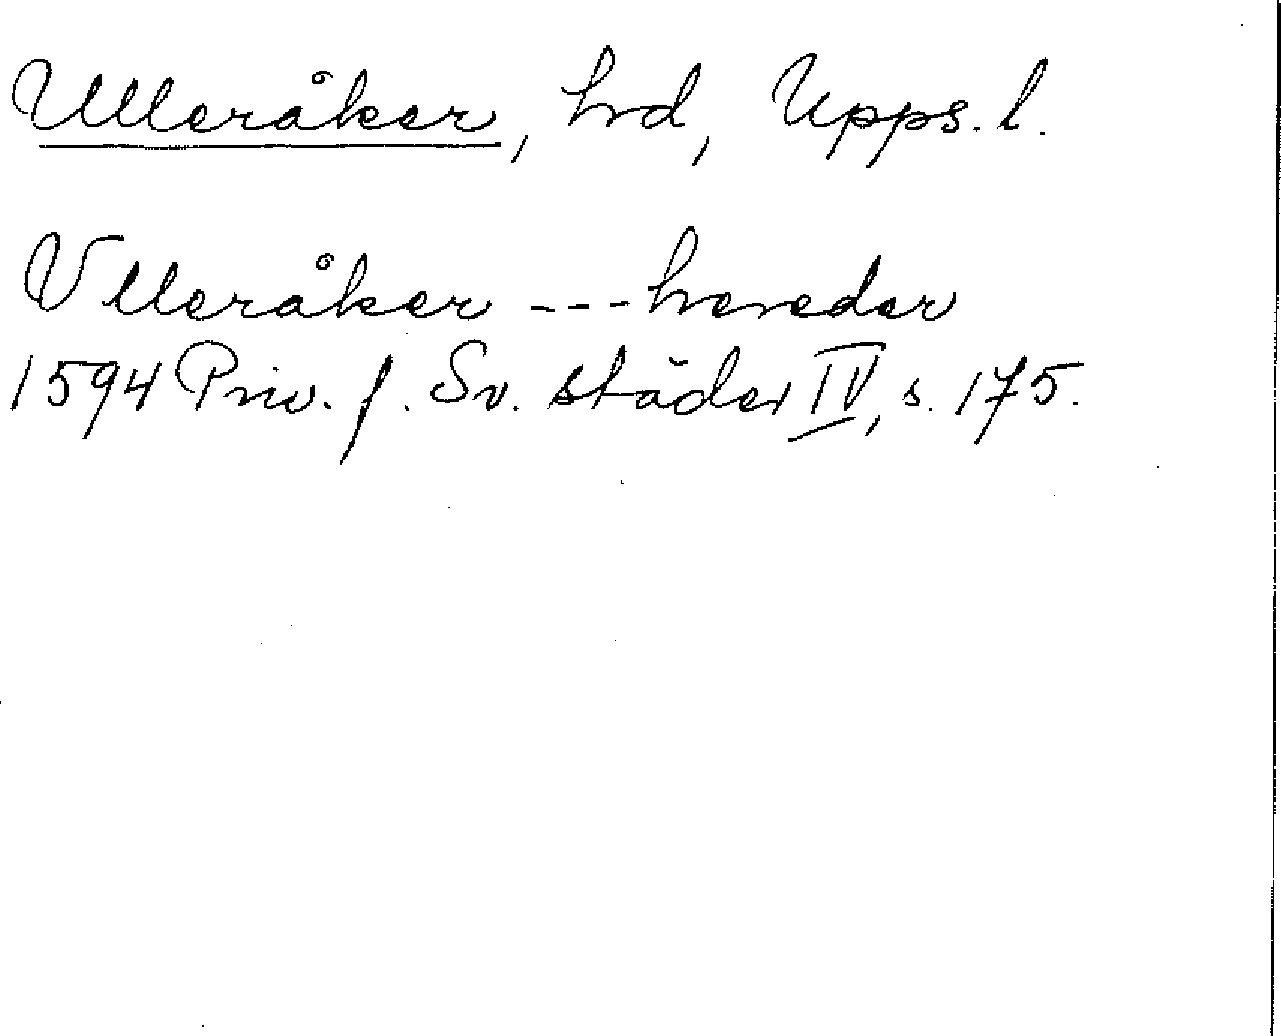 Ulleråker, hrd, Upps. l.
Vlleråker --- hereder
1594 Priv. f. Sv. städer IV, s. 175.